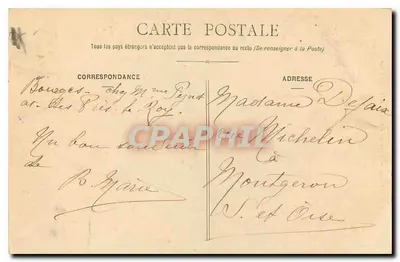 CARTE POSTALE
Tous les pays étrangers n'acceptent pas la correspondance au recto (Se renseigner à la Poste)
CORRESPONDANCE
ADRESSE
Bourges chez Mme
Un bon souvenir
de
Marie
Madame
rue Michelin
à
Montgeron
S. et Oise
CPARAMA